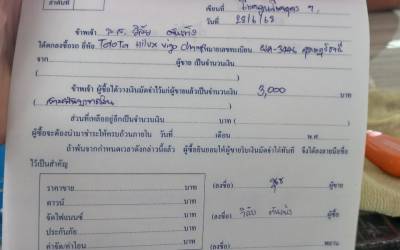 ลำดับที่
เขียนที่
วันที่ 25/6/68
ข้าพเจ้า
ได้ตกลงซื้อรถ ยี่ห้อ TOYOTA Hilux vigo หมายเลขทะเบียน
จาก ผู้ขาย เป็นจำนวนเงิน
ข้าพเจ้า ผู้ซื้อได้วางเงินมัดจำไว้แก่ผู้ขายแล้วเป็นจำนวนเงิน 3,000 บาท
(สามพันบาทถ้วน)
ส่วนที่เหลืออยู่อีกเป็นจำนวนเงิน บาท (
ผู้ซื้อจะต้องนำมาชำระให้ครบถ้วนภายใน วันที่ เดือน พ.ศ.
ถ้าพ้นจากกำหนดเวลาดังกล่าวนี้แล้ว ผู้ซื้อยินยอมให้ผู้ขายริบเงินมัดจำได้ทันที จึงได้ลงลายมือชื่อ
ไว้เป็นสำคัญ
ราคาขาย บาท
(ลงชื่อ) ผู้ขาย
ดาวน์ บาท
จัดไฟแนนซ์ บาท
(ลงชื่อ) ผู้ซื้อ
ประกันภัย บาท
ค่าจัด/ค่าโอน บาท
(ลงชื่อ) พยาน